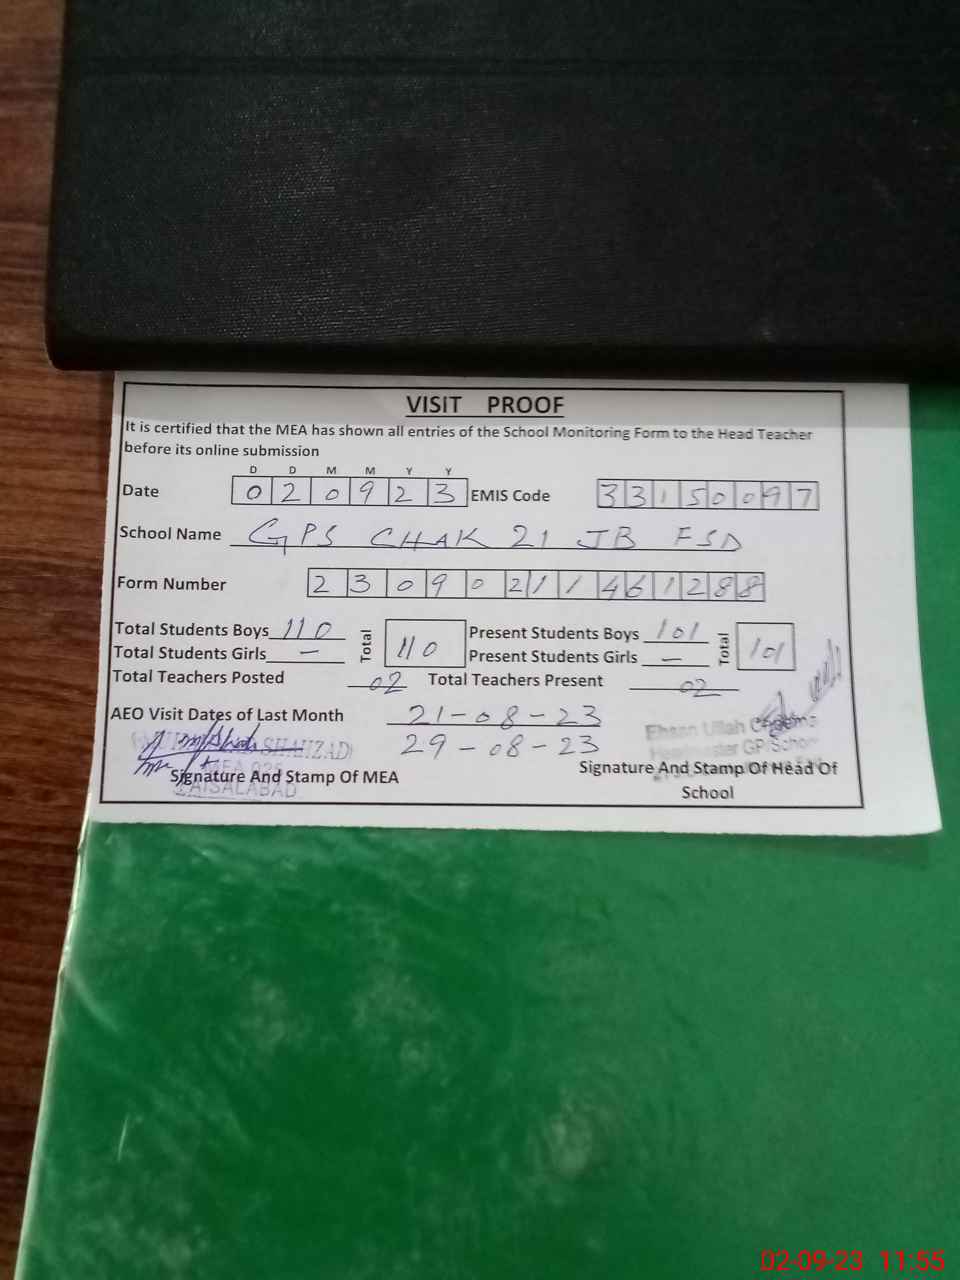 VISIT PROOF
It is certified that the MEA has shown all entries of the School Monitoring Form to the Head Teacher
before its online submission
D D M M Y Y
Date 020923 EMIS Code 33150097
School Name GPS CHAK 21 JB FSD
Form Number 23090211461288
Total Students Boys 110 Total 110 Present Students Boys 101 Total 101
Total Students Girls — Present Students Girls —
Total Teachers Posted 02 Total Teachers Present 02
AEO Visit Dates of Last Month 21-08-23
29-08-23
Ehsan Ullah Cheema
Headmaster GP School
SHAHZAD
MEA
FAISALABAD
Signature And Stamp Of MEA
Signature And Stamp Of Head Of
School
02-09-23 11:55